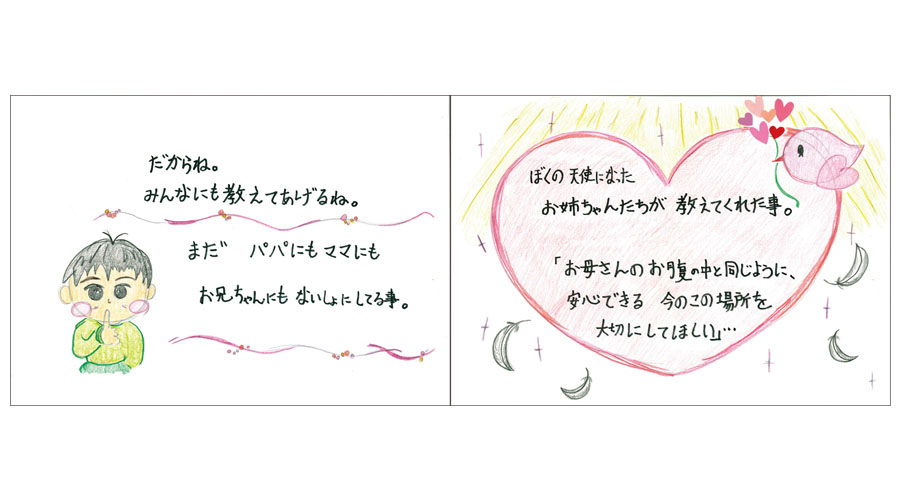 だからね。
みんなにも教えてあげるね。
まだ パパにもママにも
お兄ちゃんにも ないしょにしてる事。
ぼくの天使になった
お姉ちゃんたちが 教えてくれた事。
「お母さんのお腹の中と同じように、
安心できる 今のこの場所を
大切にしてほしい」…